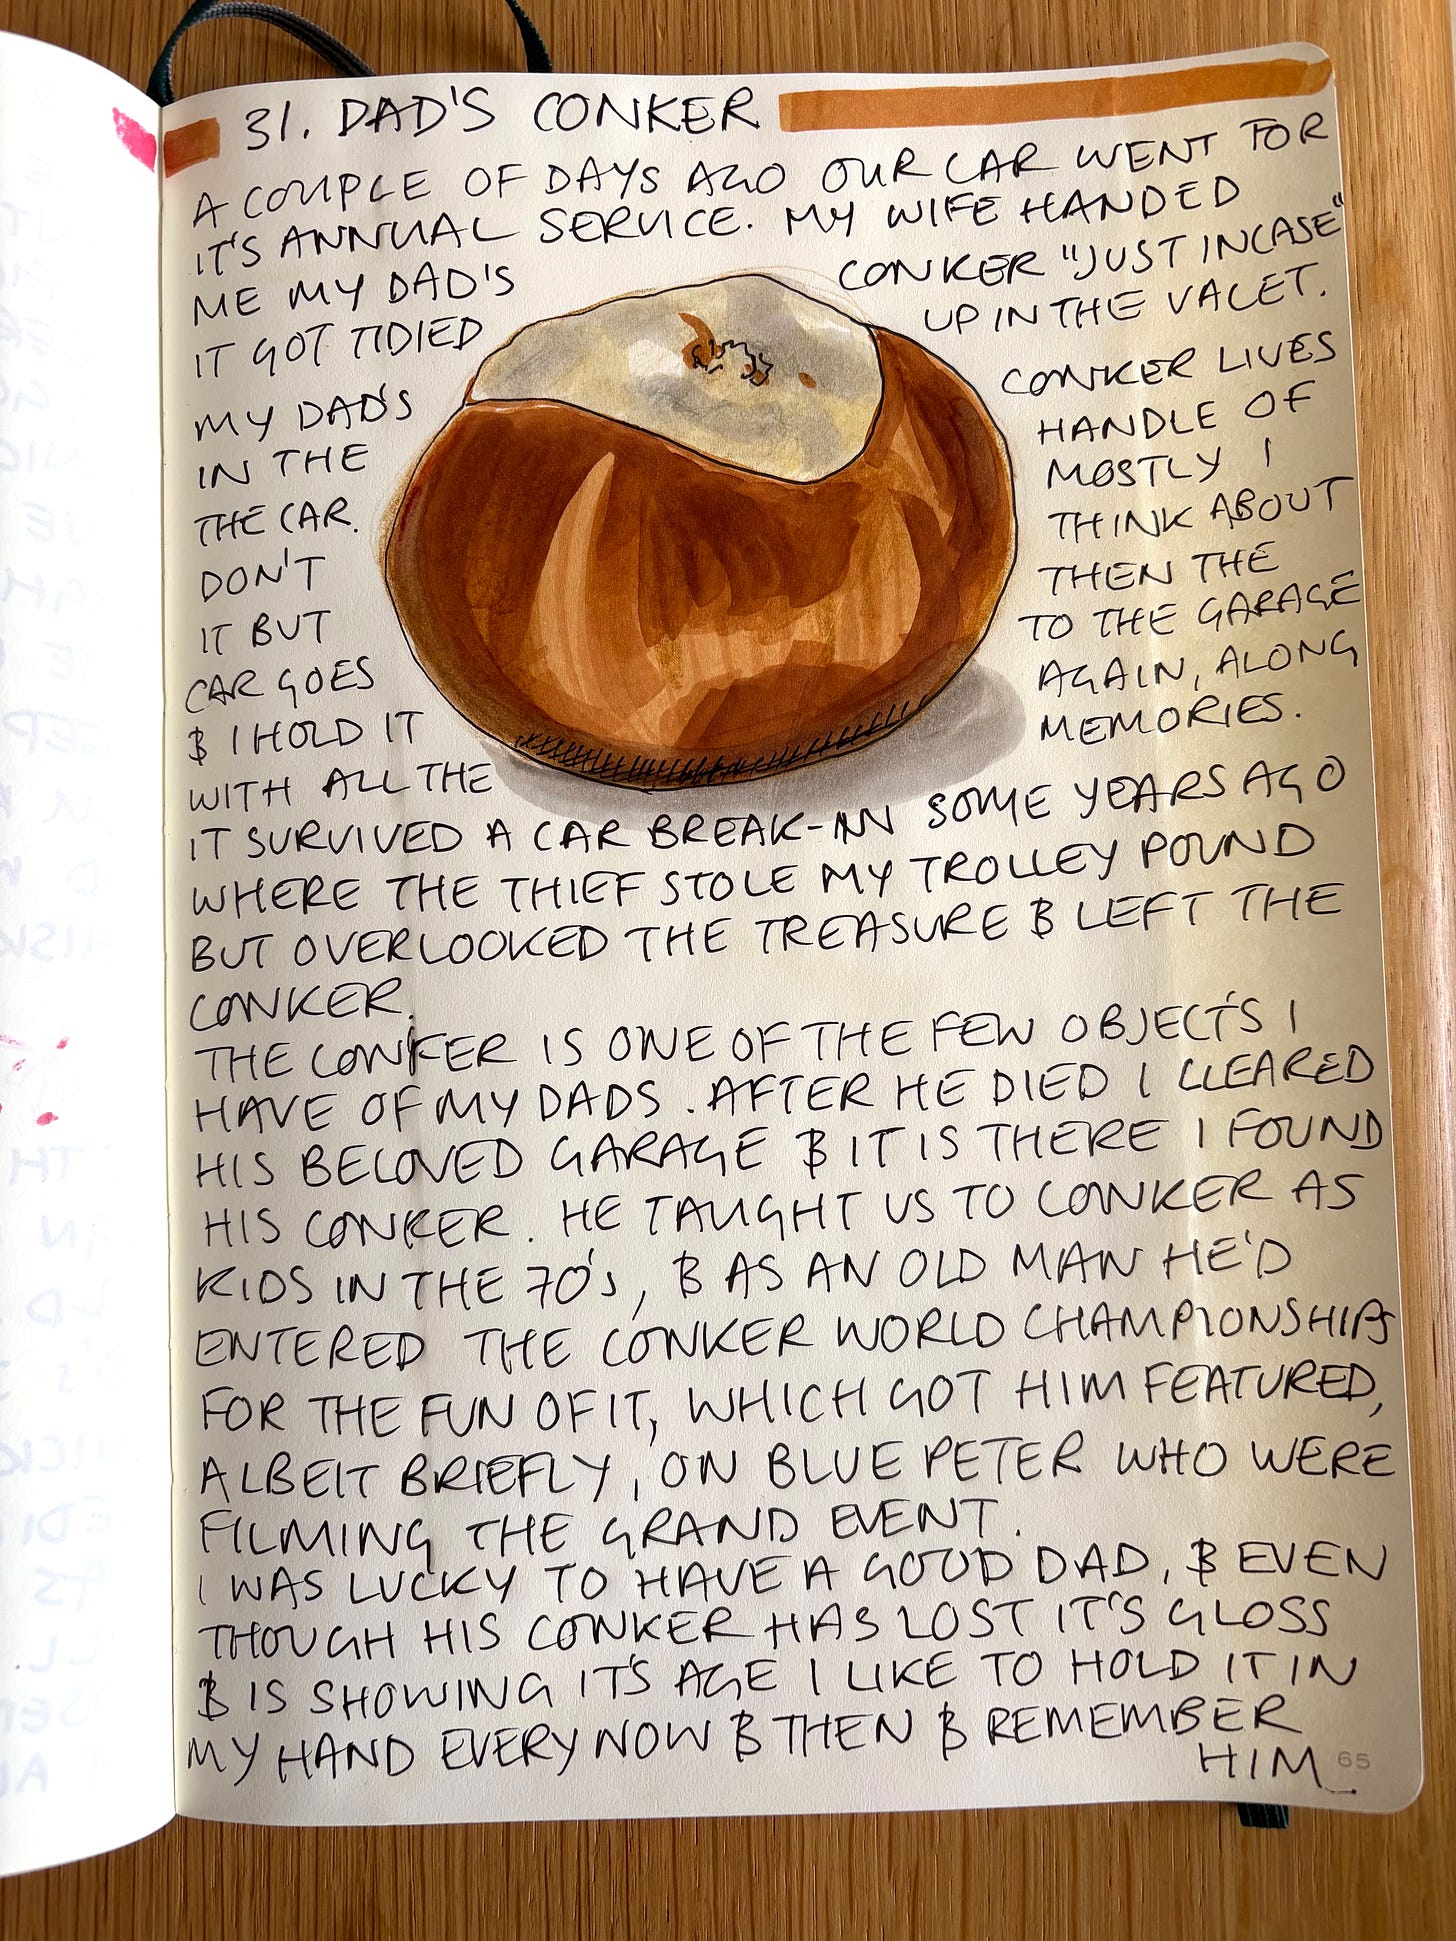 31. DAD'S CONKER
A COUPLE OF DAYS AGO OUR CAR WENT FOR
IT'S ANNUAL SERVICE. MY WIFE HANDED
ME MY DAD'S CONKER "JUST INCASE"
IT GOT TIDIED UP IN THE VALET.
MY DAD'S CONKER LIVES
IN THE HANDLE OF
THE CAR. MOSTLY I
DON'T THINK ABOUT
IT BUT THEN THE
CAR GOES TO THE GARAGE
& I HOLD IT AGAIN, ALONG
WITH ALL THE MEMORIES.
IT SURVIVED A CAR BREAK-IN SOME YEARS AGO
WHERE THE THIEF STOLE MY TROLLEY POUND
BUT OVERLOOKED THE TREASURE & LEFT THE
CONKER.
THE CONKER IS ONE OF THE FEW OBJECT'S I
HAVE OF MY DADS. AFTER HE DIED I CLEARED
HIS BELOVED GARAGE & IT IS THERE I FOUND
HIS CONKER. HE TAUGHT US TO CONKER AS
KIDS IN THE 70's, & AS AN OLD MAN HE'D
ENTERED THE CONKER WORLD CHAMPIONSHIPS
FOR THE FUN OF IT, WHICH GOT HIM FEATURED,
ALBEIT BRIEFLY, ON BLUE PETER WHO WERE
FILMING THE GRAND EVENT.
I WAS LUCKY TO HAVE A GOOD DAD, & EVEN
THOUGH HIS CONKER HAS LOST IT'S GLOSS
& IS SHOWING IT'S AGE I LIKE TO HOLD IT IN
MY HAND EVERY NOW & THEN & REMEMBER
HIM.
65